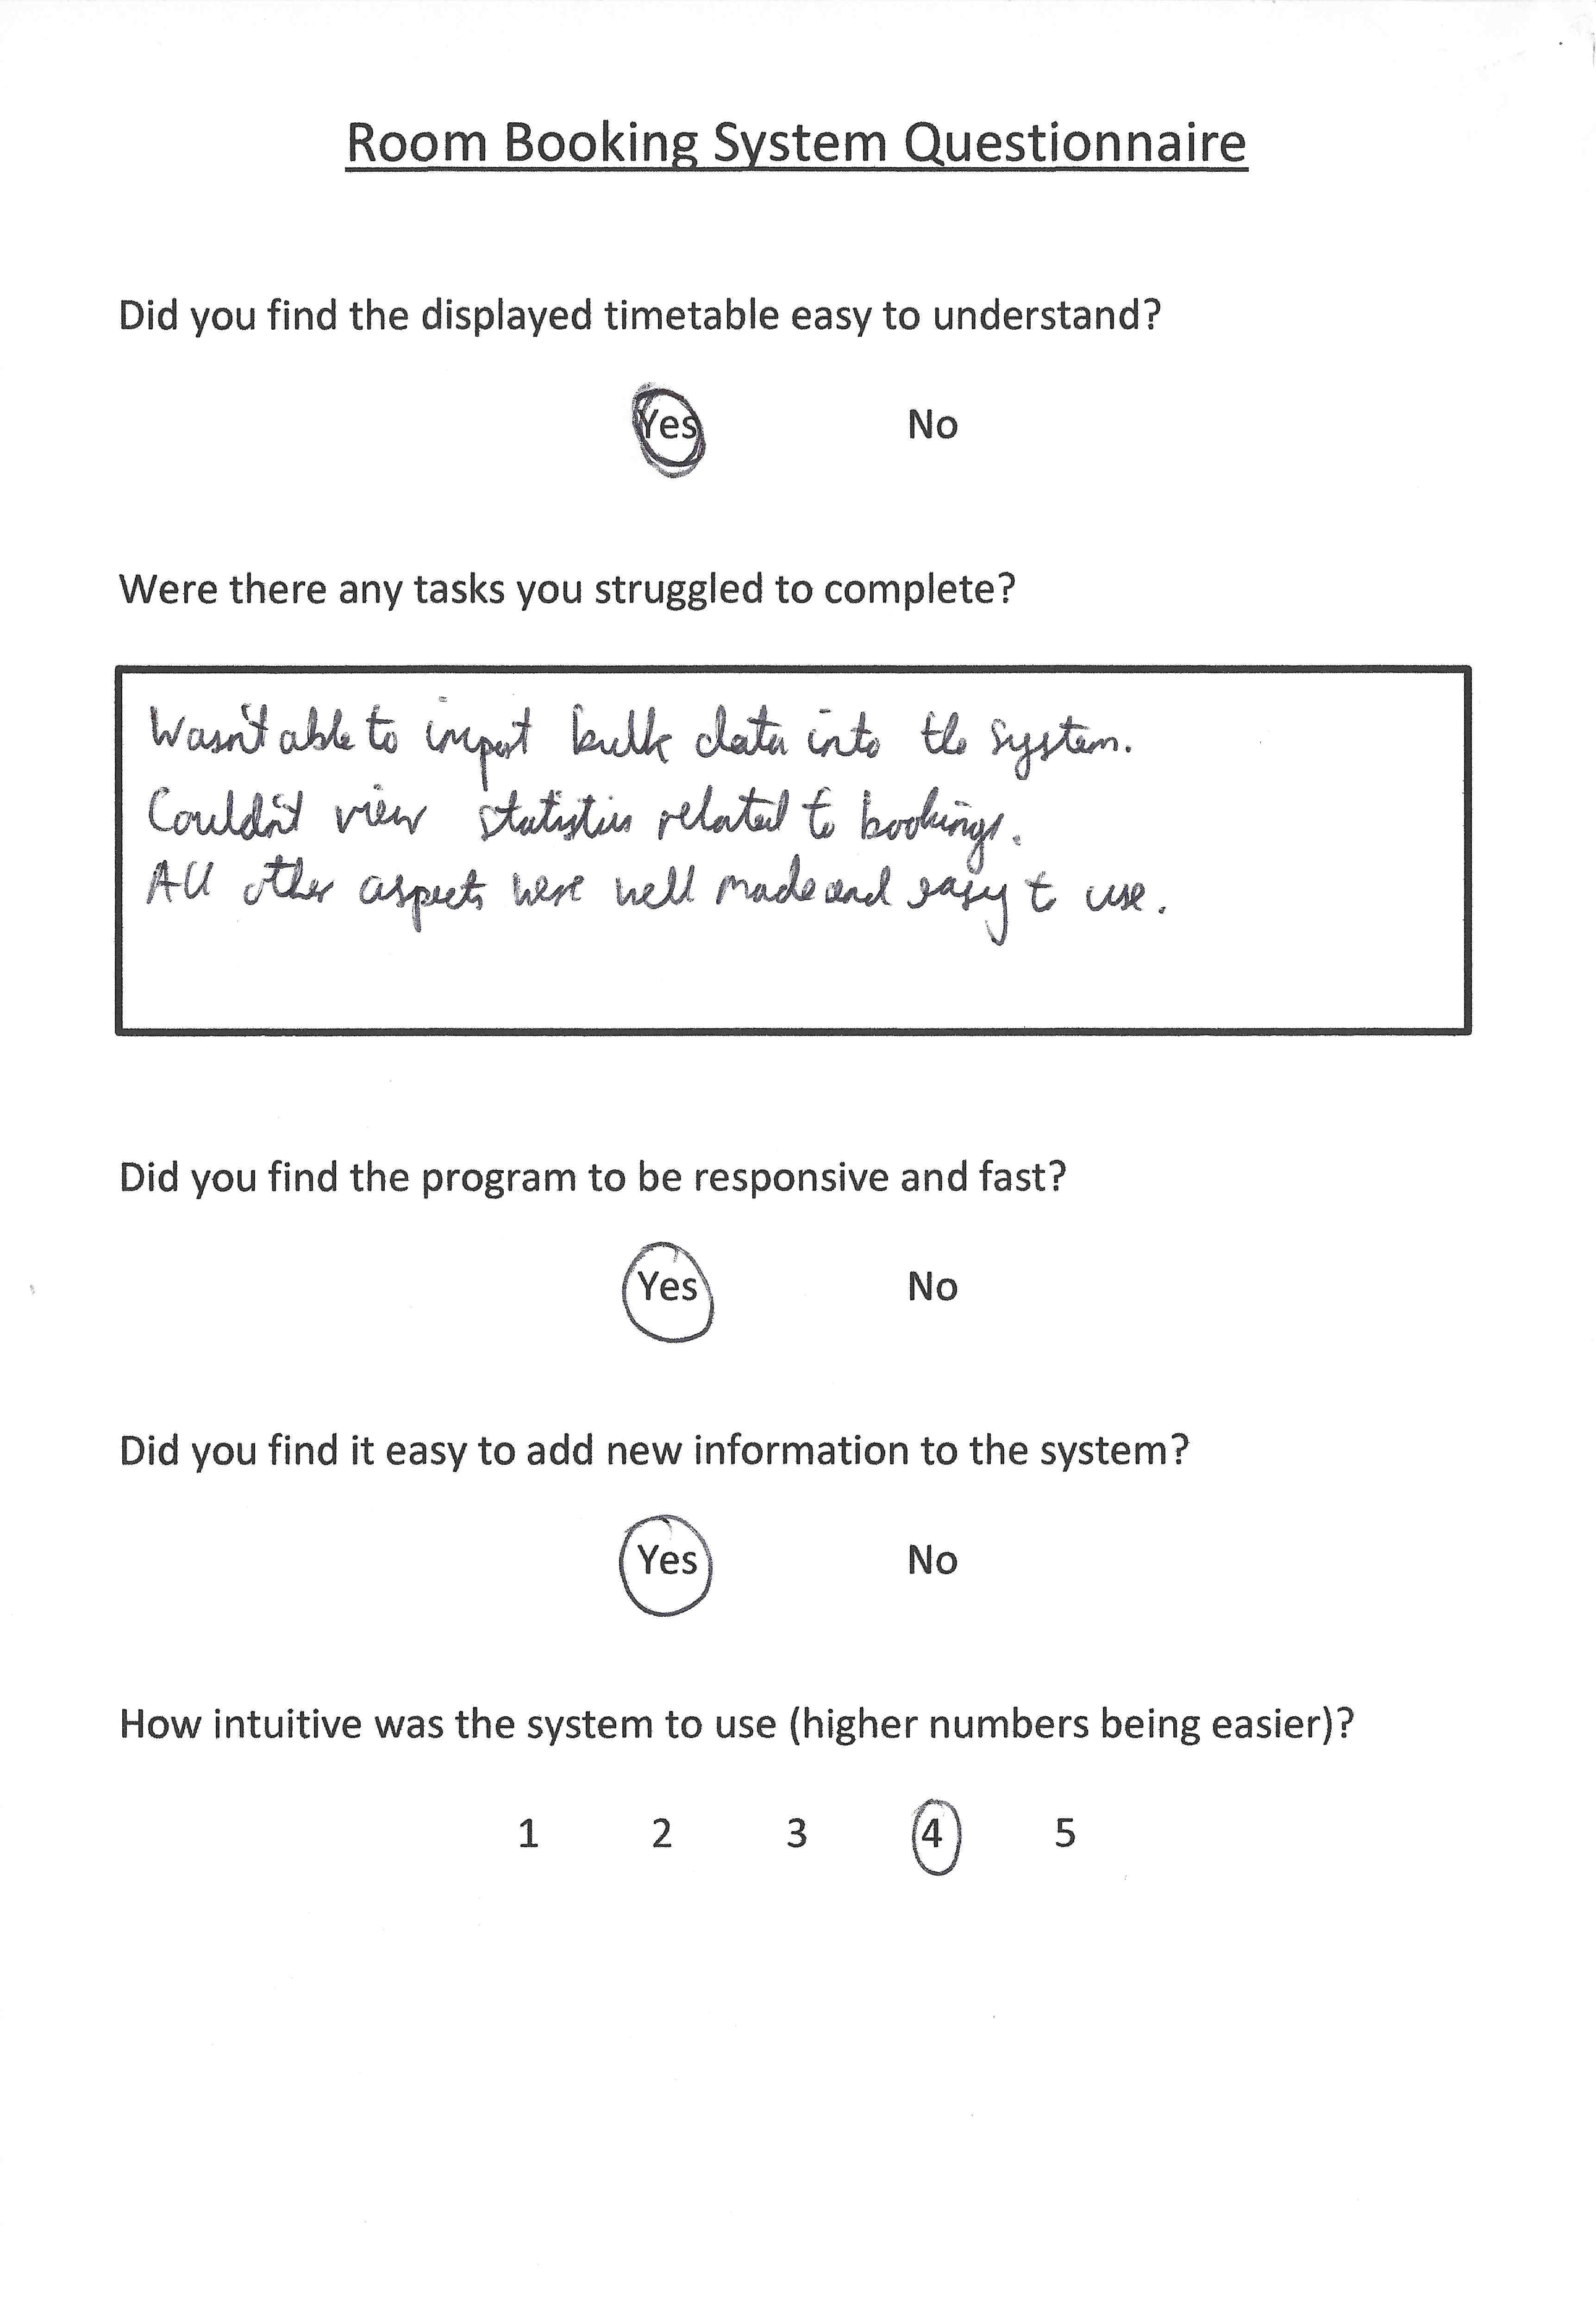 Room Booking System Questionnaire
Did you find the displayed timetable easy to understand?
Yes No
Were there any tasks you struggled to complete?
Wasn't able to import bulk data into the system.
Couldn't view statistics related to bookings.
All other aspects were well made and easy to use.
Did you find the program to be responsive and fast?
Yes No
Did you find it easy to add new information to the system?
Yes No
How intuitive was the system to use (higher numbers being easier)?
1 2 3 4 5